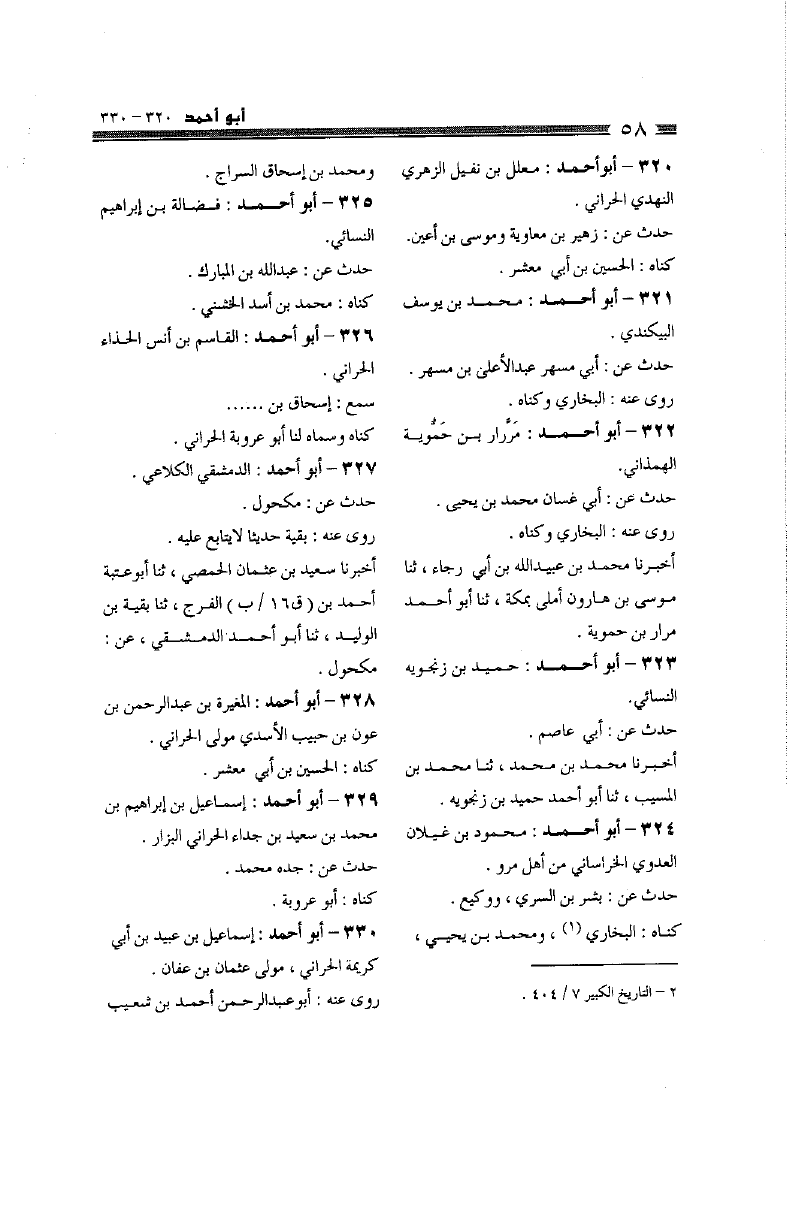 أبو أحمد ٣٢٠ – ٣٣٠
٥٨
٣٢٠ – أبوأحمد : معلل بن نفيل الزهري
النهدي الحراني .
حدث عن : زهير بن معاوية وموسى بن أعين.
كناه : الحسين بن أبي معشر .
٣٢١ – أبو أحمد : محمد بن يوسف
البيكندي .
حدث عن : أبي مسهر عبدالأعلىٰ بن مسهر .
روى عنه : البخاري وكناه .
٣٢٢ – أبو أحمد : مَرَّار بن حَمُّوية
الهمذاني.
حدث عن : أبي غسان محمد بن يحيى .
روى عنه : البخاري وكناه .
أخبرنا محمد بن عبيدالله بن أبي رجاء ، ثنا
موسى بن هارون أملى بمكة ، ثنا أبو أحمد
مرار بن حموية .
٣٢٣ – أبو أحمد : حميد بن زنجويه
النسائي.
حدث عن : أبي عاصم .
أخبرنا محمد بن محمد ، ثنا محمد بن
المسيب ، ثنا أبو أحمد حميد بن زنجويه .
٣٢٤ – أبو أحمد : محمود بن غيلان
العدوي الخراساني من أهل مرو .
حدث عن : بشر بن السري ، ووكيع .
كناه : البخاري (١) ، ومحمد بن يحيي ،
٢ – التاريخ الكبير ٧ / ٤٠٤ .
ومحمد بن إسحاق السراج .
٣٢٥ – أبو أحمد : فضالة بن إبراهيم
النسائي.
حدث عن : عبدالله بن المبارك .
كناه : محمد بن أسد الخشني .
٣٢٦ – أبو أحمد : القاسم بن أنس الحذاء
الحراني .
سمع : إسحاق بن ......
كناه وسماه لنا أبو عروبة الحراني .
٣٢٧ – أبو أحمد : الدمشقي الكلاعي .
حدث عن : مكحول .
روى عنه : بقية حديثا لايتابع عليه .
أخبرنا سعيد بن عثمان الحمصي ، ثنا أبوعتبة
أحمد بن ( ق١٦ / ب ) الفرج ، ثنا بقية بن
الوليد ، ثنا أبو أحمد الدمشقي ، عن :
مكحول .
٣٢٨ – أبو أحمد : المغيرة بن عبدالرحمن بن
عون بن حبيب الأسدي مولى الحراني .
كناه : الحسين بن أبي معشر .
٣٢٩ – أبو أحمد : إسماعيل بن إبراهيم بن
محمد بن سعيد بن جداء الحراني البزار .
حدث عن : جده محمد .
كناه : أبو عروبة .
٣٣٠ – أبو أحمد : إسماعيل بن عبيد بن أبي
كريمة الحراني ، مولى عثمان بن عفان .
روى عنه : أبوعبدالرحمن أحمد بن شعيب